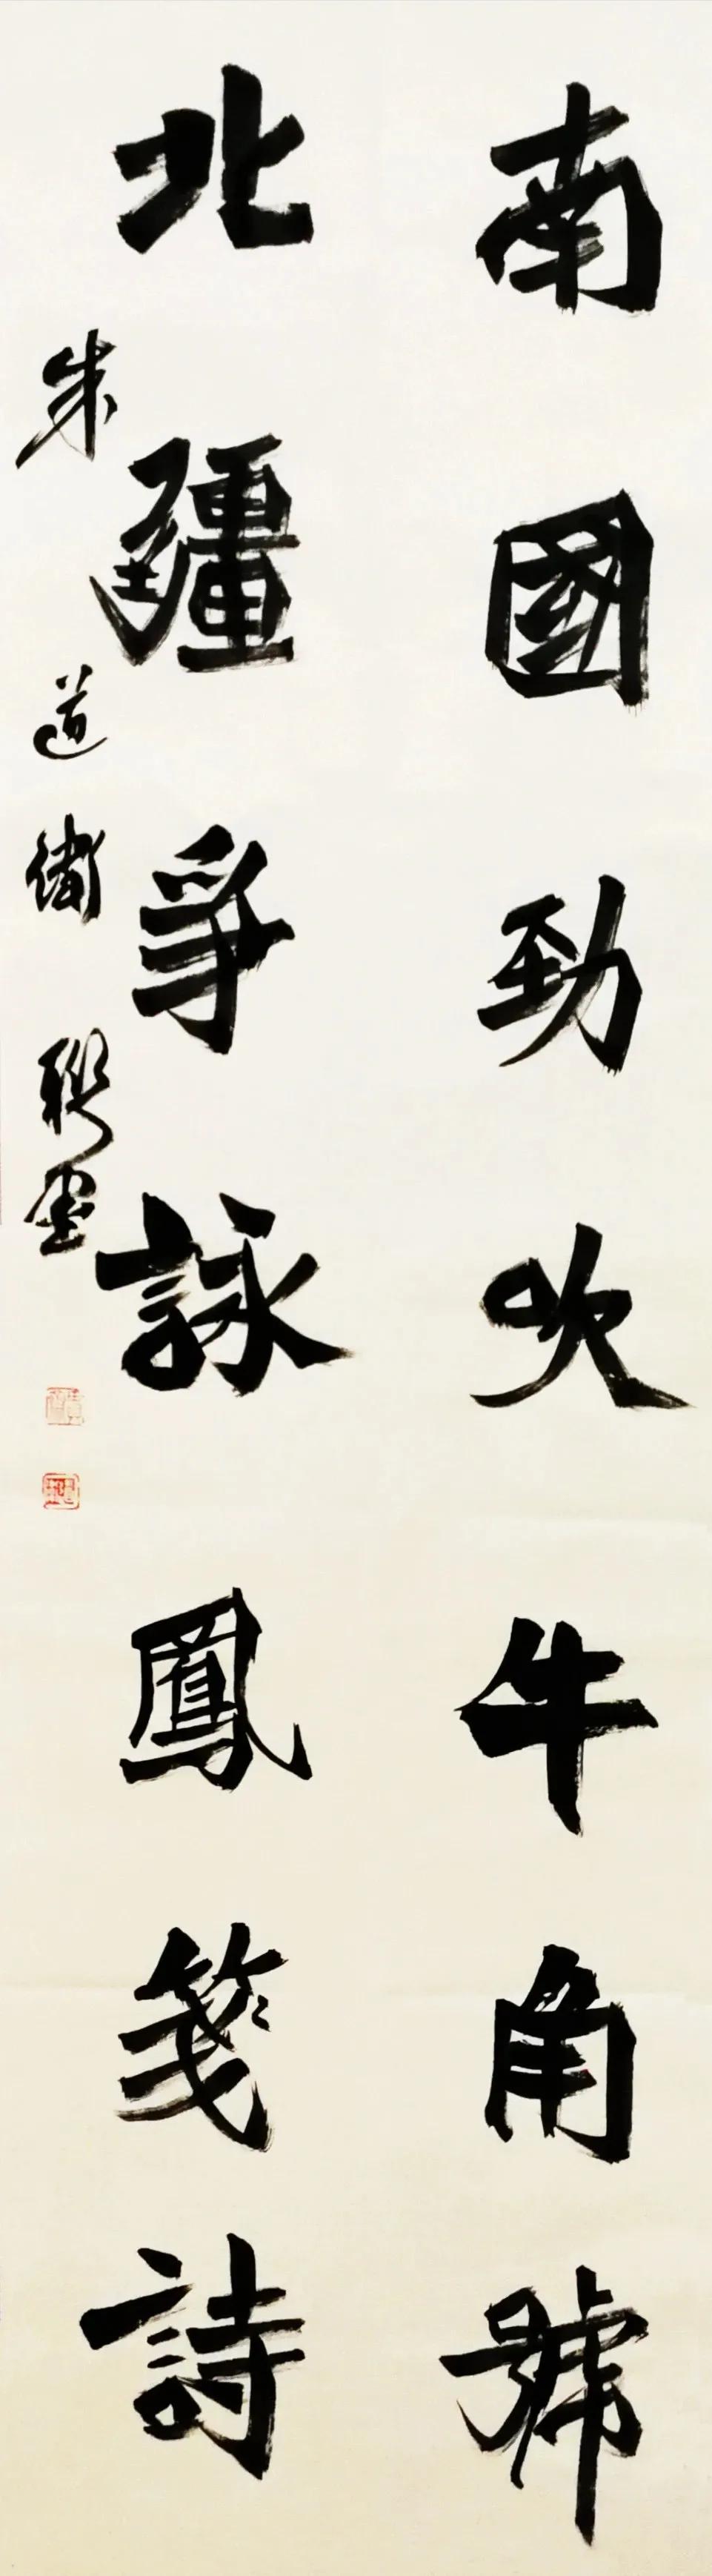 南國勁吹牛角號
北疆爭詠鳳箋詩
朱道衛聯書